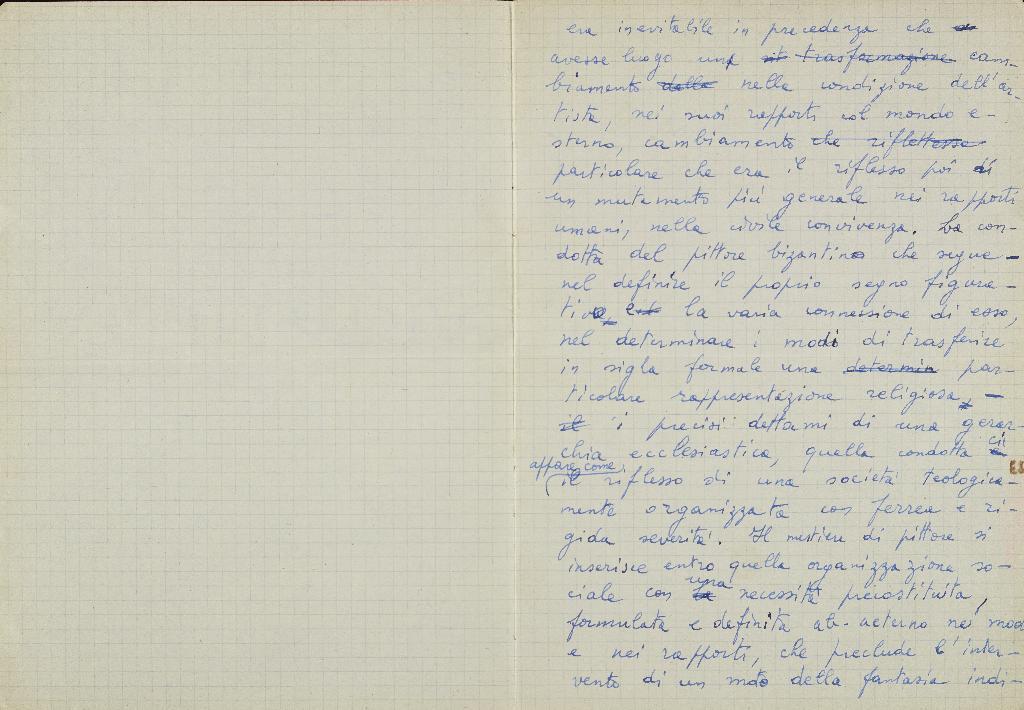 era inevitabile in precedenza che
avesse luogo un trasformazione cam-
biamento della nella condizione dell'ar-
tista, nei suoi rapporti col mondo e-
sterno, cambiamento che riflettesse
particolare che era il riflesso poi di
un mutamento più generale nei rapporti
umani, nella civile convivenza. La con-
dotta del pittore bizantino che segue
nel definire il proprio segno figura-
tivo, la varia connessione di esso,
nel determinare i modi di trasferire
in sigla formale una determin par-
ticolare rappresentazione religiosa,
il i precisi dettami di una gerar-
chia ecclesiastica, quella condotta ci
appare come
il riflesso di una società teologica-
mente organizzata con ferrea e ri-
gida severità. Il mestiere di pittore si
inserisce entro quella organizzazione so-
ciale con una necessità precostituita,
formulata e definita ab-aeterno nei modi
e nei rapporti, che preclude l'inter-
vento di un moto della fantasia indi-